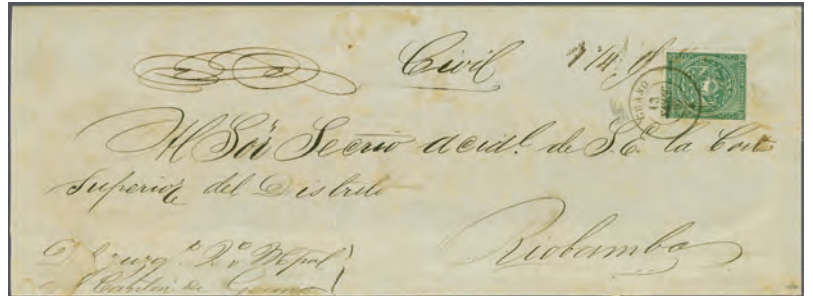 Civil 1 1/4
Al Sor Secrio accidl de S.E. la Corte
Superior del Distrito
Riobamba
Del Juzgo 2o Mpal
del Cantón de